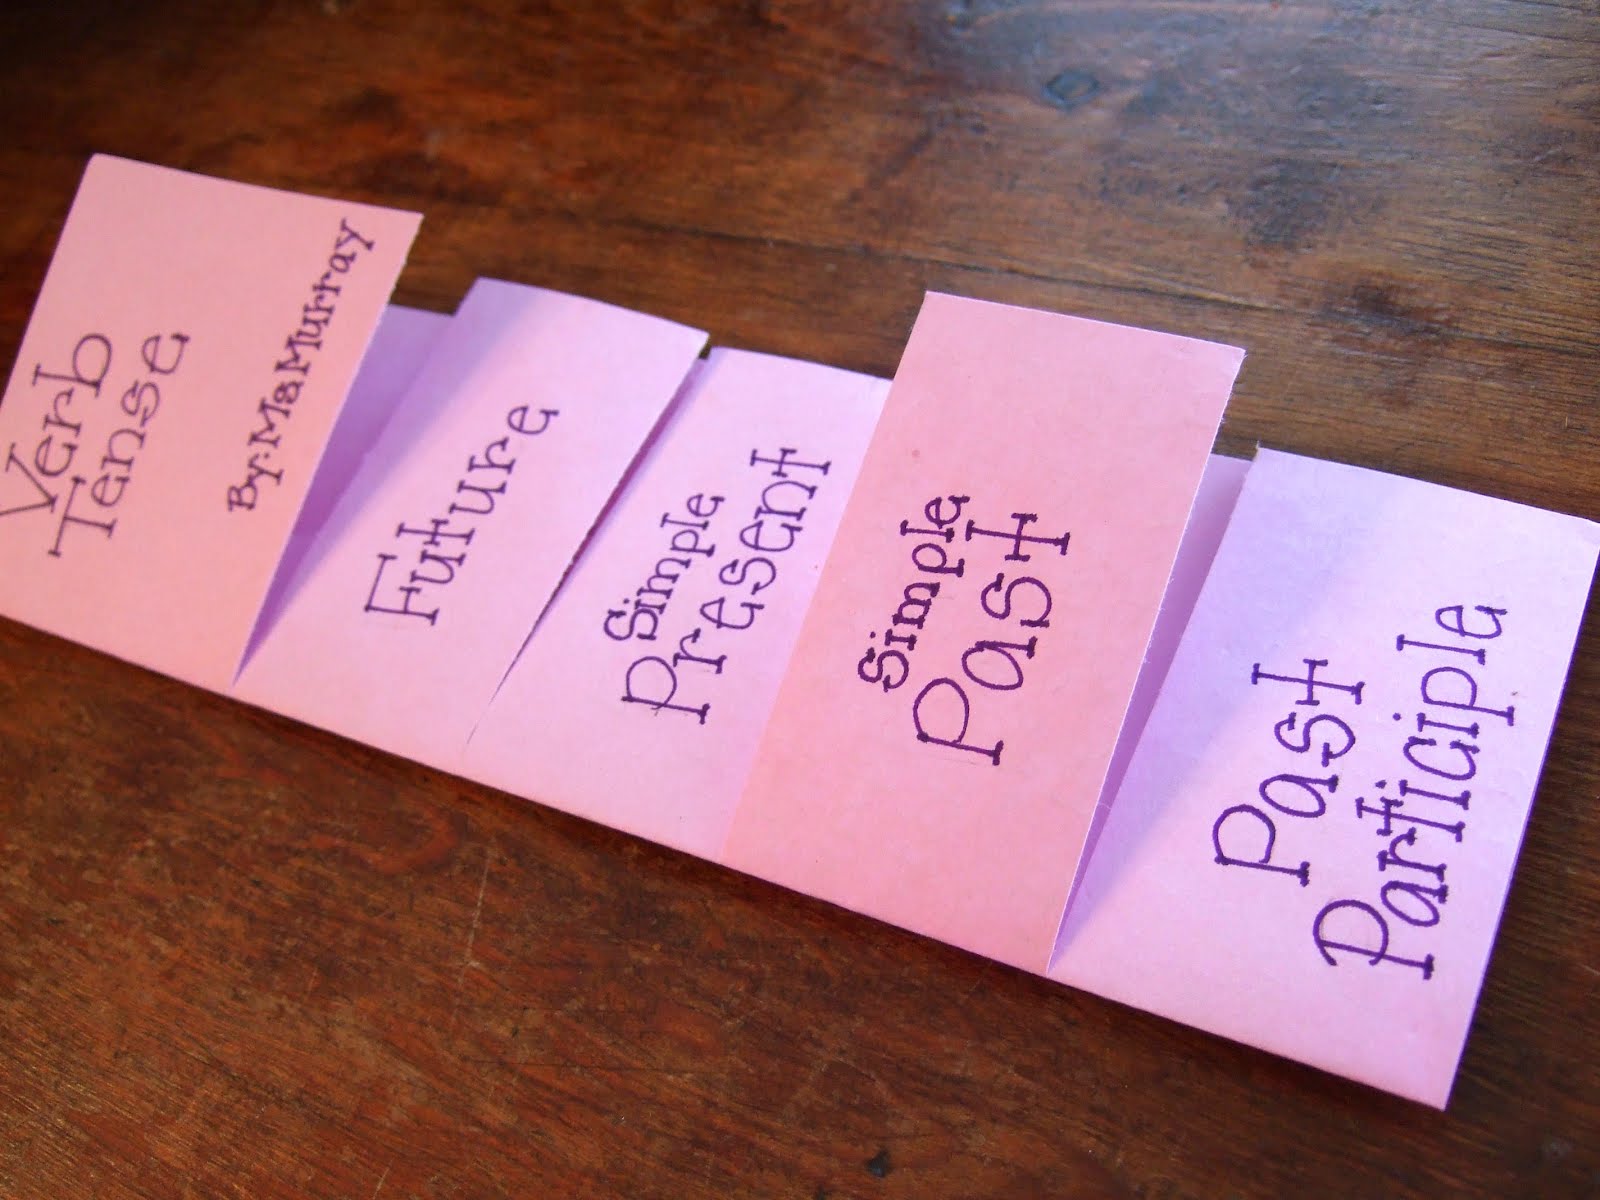 Verb
Tense
By: Ms Murray
Future
Simple
Present
Simple
Past
Past
Participle